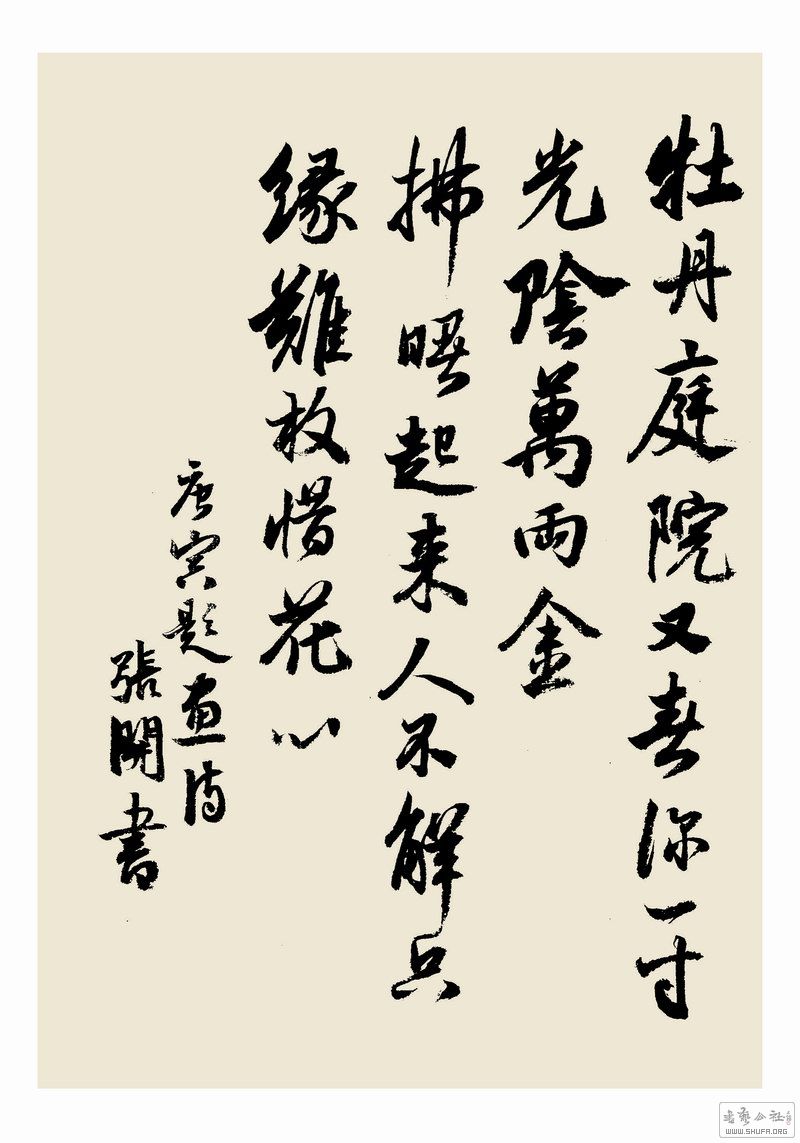 牡丹庭院又春深一寸
光陰萬兩金
拂曙起來人不解只
緣難放惜花心
唐寅題畫詩
張開書
書藝公社
WWW.SHUFA.ORG